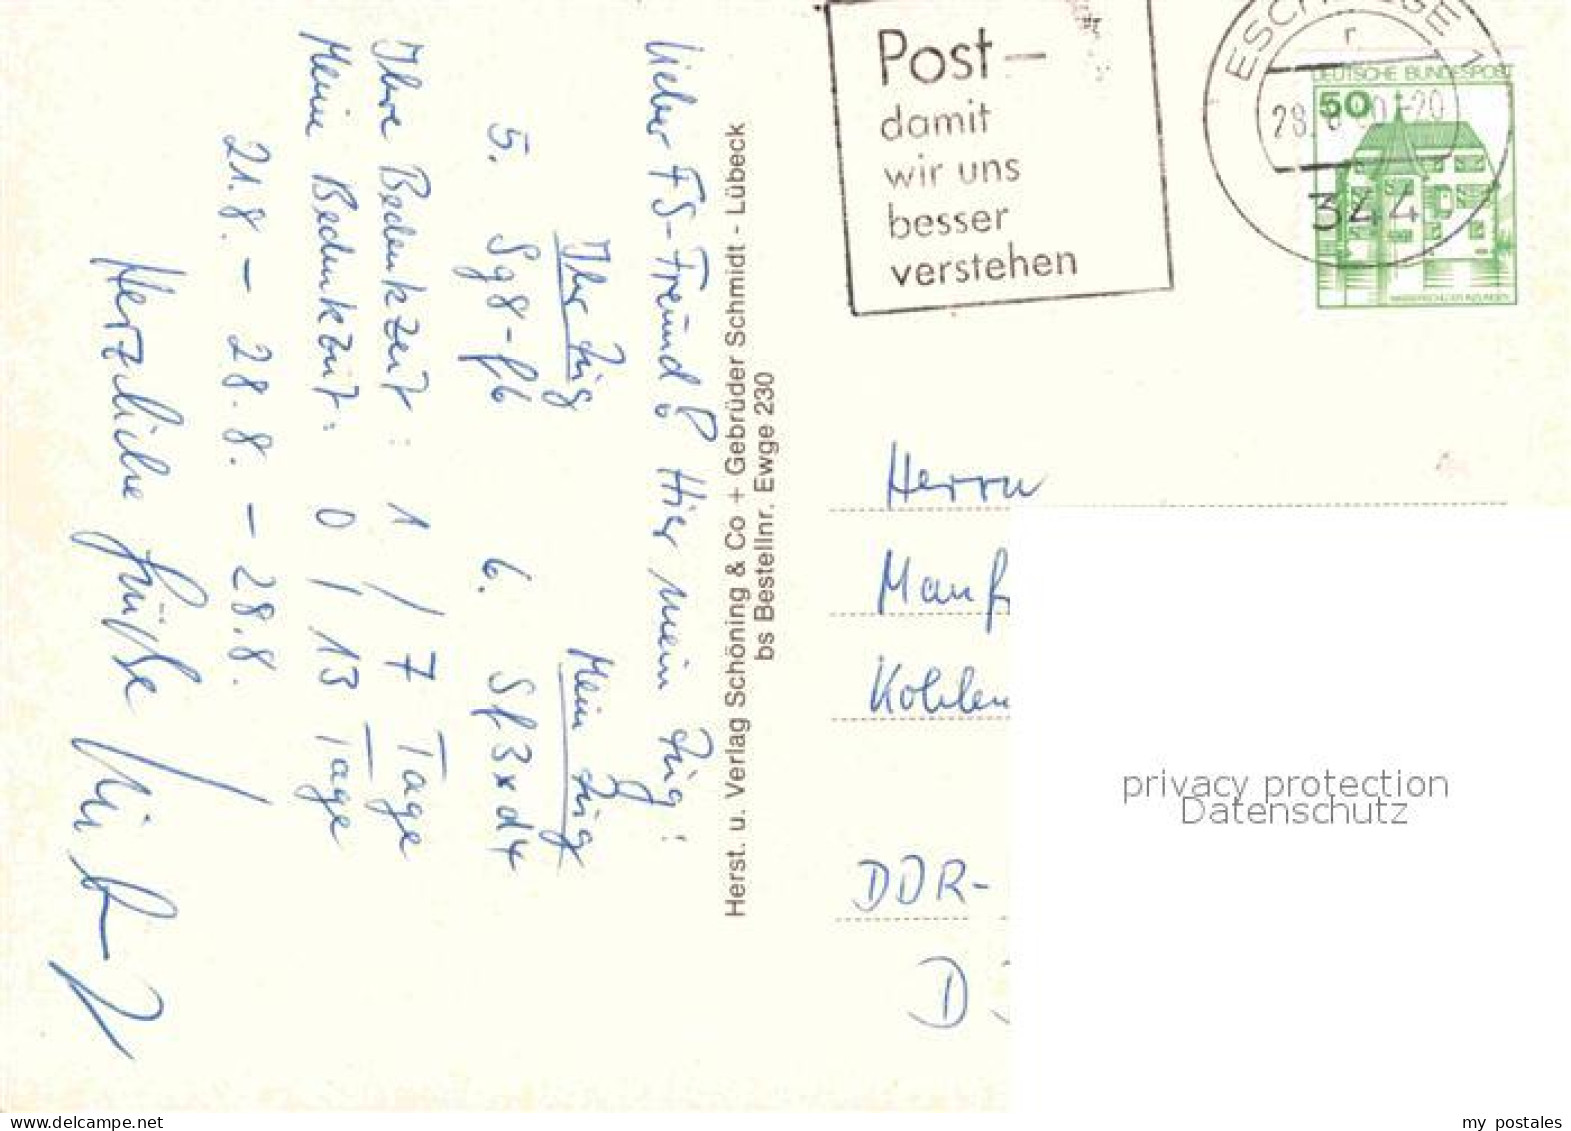 Lieber FS-Freund! Hier mein Zug:
Ihr Zug Mein Zug
5. Sg8-f6 6. Sf3xd4
Ihre Bedenkzeit: 1 / 7 Tage
Meine Bedenkzeit: 0 / 13 Tage
21.8. - 28.8. - 28.8.
Herzliche Grüße
Herst. u. Verlag Schöning & Co + Gebrüder Schmidt - Lübeck
bs Bestellnr. Ewge 230
Post -
damit
wir uns
besser
verstehen
ESCHWEGE 1
r
28. -20
344
DEUTSCHE BUNDESPOST
50
Herrn
Manf
Kohlen
DDR-
D
privacy protection
Datenschutz
www.delcampe.net
my_postales